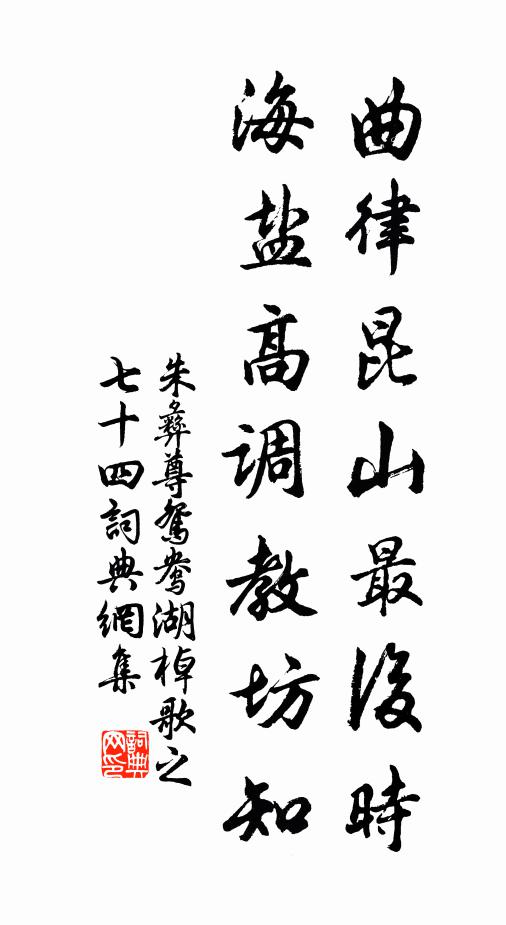 曲律昆山最後時
海盐高调教坊知
朱彝尊鸳鸯湖棹歌之
七十四詞典網集
詞典
网印